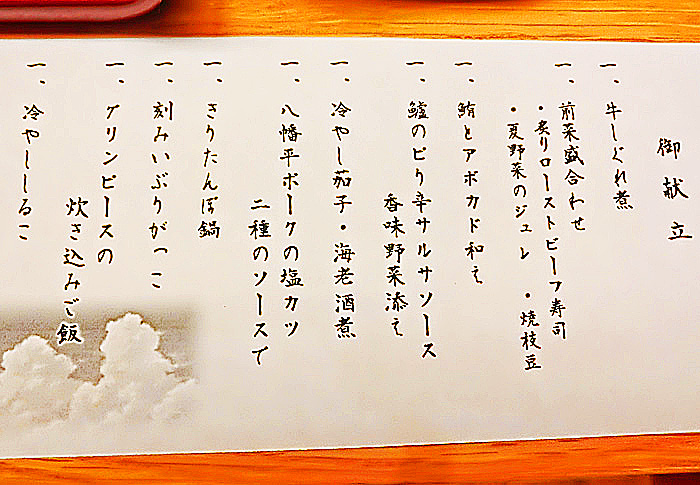 御献立
一、牛しぐれ煮
一、前菜盛合わせ
・炙りローストビーフ寿司
・夏野菜のジュレ ・焼枝豆
一、鮪とアボカド和え
一、鱸のピリ辛サルサソース
香味野菜添え
一、冷やし茄子・海老酒煮
一、八幡平ポークの塩カツ
二種のソースで
一、きりたんぽ鍋
一、刻みいぶりがっこ
一、グリンピースの
炊き込みご飯
一、冷やししるこ